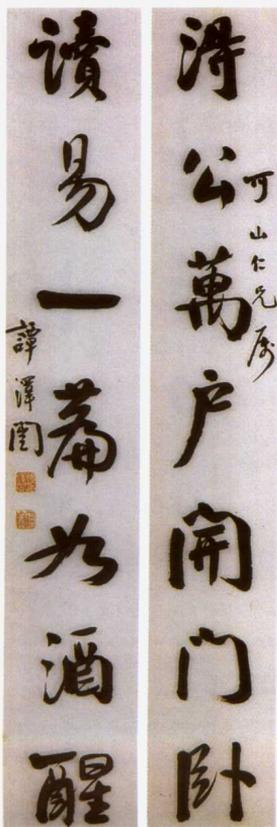 得公萬户開门卧
可山仁兄属
讀易一篇如酒醒
譚澤闓